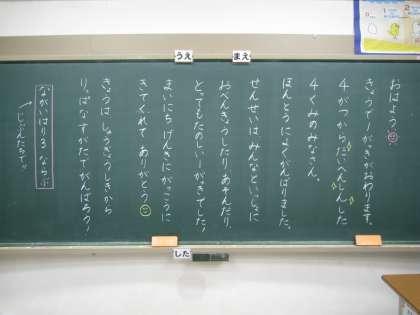 おはよう
きょうで１がっきがおわります。
４がつから だいへんしんした
４くみのみなさん。
ほんとうによくがんばりました。
せんせいは みんなといっしょに
おべんきょうしたり あそんだり、
とってもたのしい１がっきでした！
まいにち げんきにがっこうに
きてくれて ありがとう
きょうは しゅうぎょうしきから
りっぱなすがたで がんばろう！
ながいはり３ ならぶ
じぶんたちで!!
うえ
まえ
した